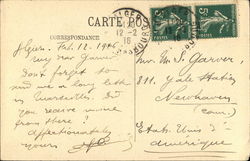 CARTE POS
CORRESPONDANCE
12-2
16
5c
Algiers. Feb. 12. 1916
My dear Garver
Don't forget to
send me a long letter
in Marseilles. Did
you receive more
from there?
Affectionately
yours
Mr. W. S. Garver,
311, Yale Station
Newhaven
(Conn.)
Etats Unis d'
Amérique